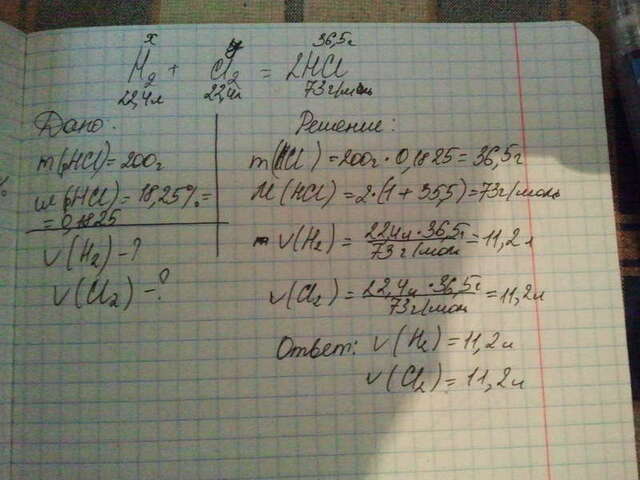 x y 36,5г
H₂ + Cl₂ = 2HCl
22,4л 22,4л 73г/моль
Дано: Решение:
m(рHCl)=200г
ω(рHCl)=18,25%=
=0,1825
V(H₂)-?
V(Cl₂)-?
m(HCl)=200г·0,1825=36,5г
M(HCl)=2·(1+35,5)=73г/моль
V(H₂)=22,4л·36,5г/73г/моль=11,2л
V(Cl₂)=22,4л·36,5г/73г/моль=11,2л
Ответ: V(H₂)=11,2л
V(Cl₂)=11,2л